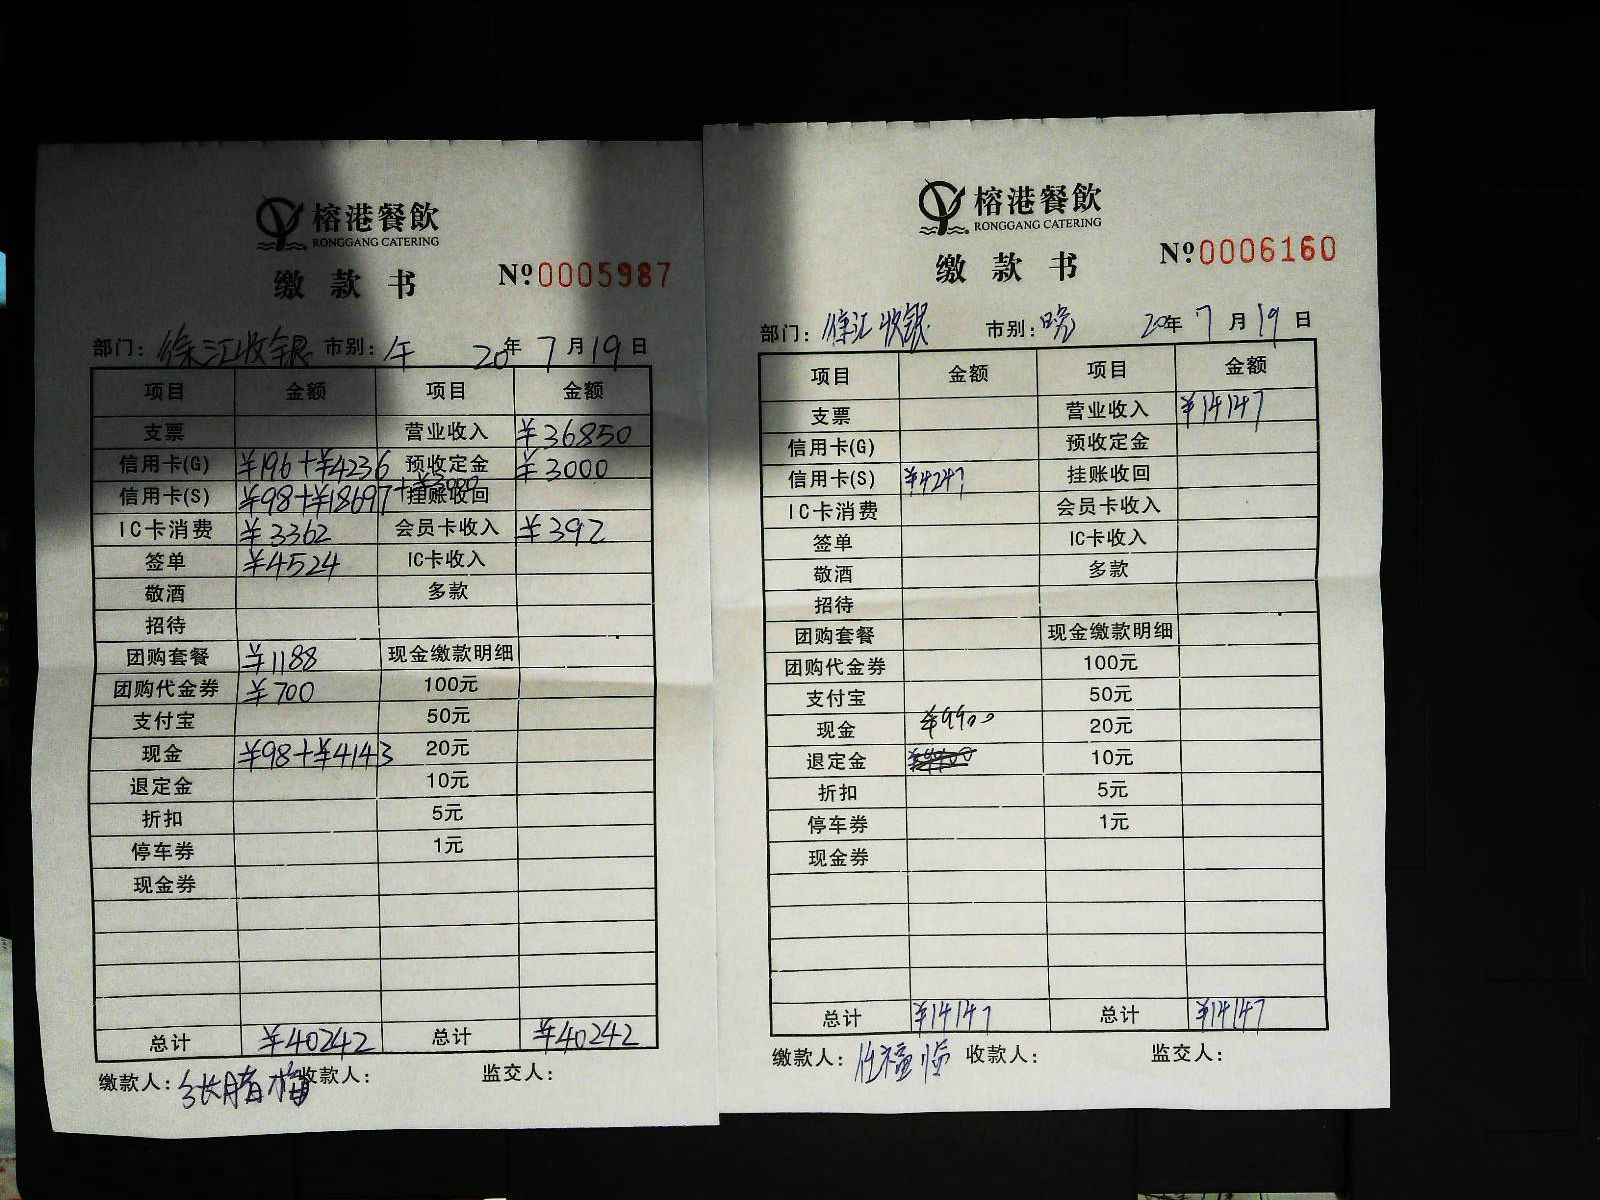 榕港餐飲
RONGGANG CATERING
缴款书
Nº0005987
部门: 徐汇收银 市别: 午 20年 7月 19日
项目 金额 项目 金额
支票 营业收入 ¥36850
信用卡(G) ¥196+¥4236 预收定金 ¥3000
信用卡(S) ¥98+¥18697+¥3000 挂账收回
IC卡消费 ¥3362 会员卡收入 ¥392
签单 ¥4524 IC卡收入
敬酒 多款
招待
团购套餐 ¥1188 现金缴款明细
团购代金券 ¥700 100元
支付宝 50元
现金 ¥98+¥4143 20元
退定金 10元
折扣 5元
停车券 1元
现金券
总计 ¥40242 总计 ¥40242
缴款人: 张腊梅 收款人: 监交人:
榕港餐飲
RONGGANG CATERING
缴款书
Nº0006160
部门: 徐汇收银 市别: 晚 20年 7月 19日
项目 金额 项目 金额
支票 营业收入 ¥14147
信用卡(G) 预收定金
信用卡(S) ¥4247 挂账收回
IC卡消费 会员卡收入
签单 IC卡收入
敬酒 多款
招待
团购套餐 现金缴款明细
团购代金券 100元
支付宝 50元
现金 ¥9900 20元
退定金 10元
折扣 5元
停车券 1元
现金券
总计 ¥14147 总计 ¥14147
缴款人: 收款人: 监交人: